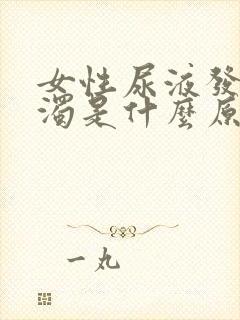 女性尿液發
濁是什麼原
一丸